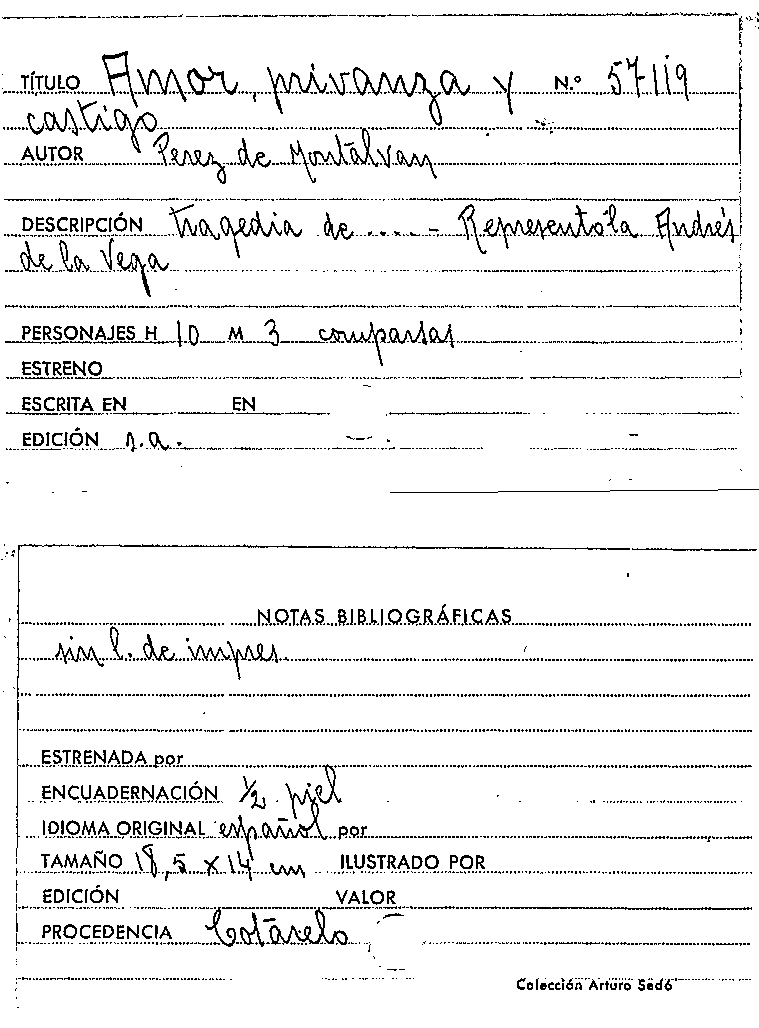 TÍTULO Amor, privanza y N.º 57119
castigo
AUTOR Perez de Montalvan
DESCRIPCIÓN tragedia de .... - Representóla Andrés
de la Vega
PERSONAJES H 10 M 3 comparsas
ESTRENO
ESCRITA EN EN
EDICIÓN s.a.
NOTAS BIBLIOGRÁFICAS
sin l. de impres.
ESTRENADA por
ENCUADERNACIÓN ½ piel
IDIOMA ORIGINAL español por
TAMAÑO 18,5 x 14 cm ILUSTRADO POR
EDICIÓN VALOR
PROCEDENCIA Cotarelo
Colección Arturo Sedó